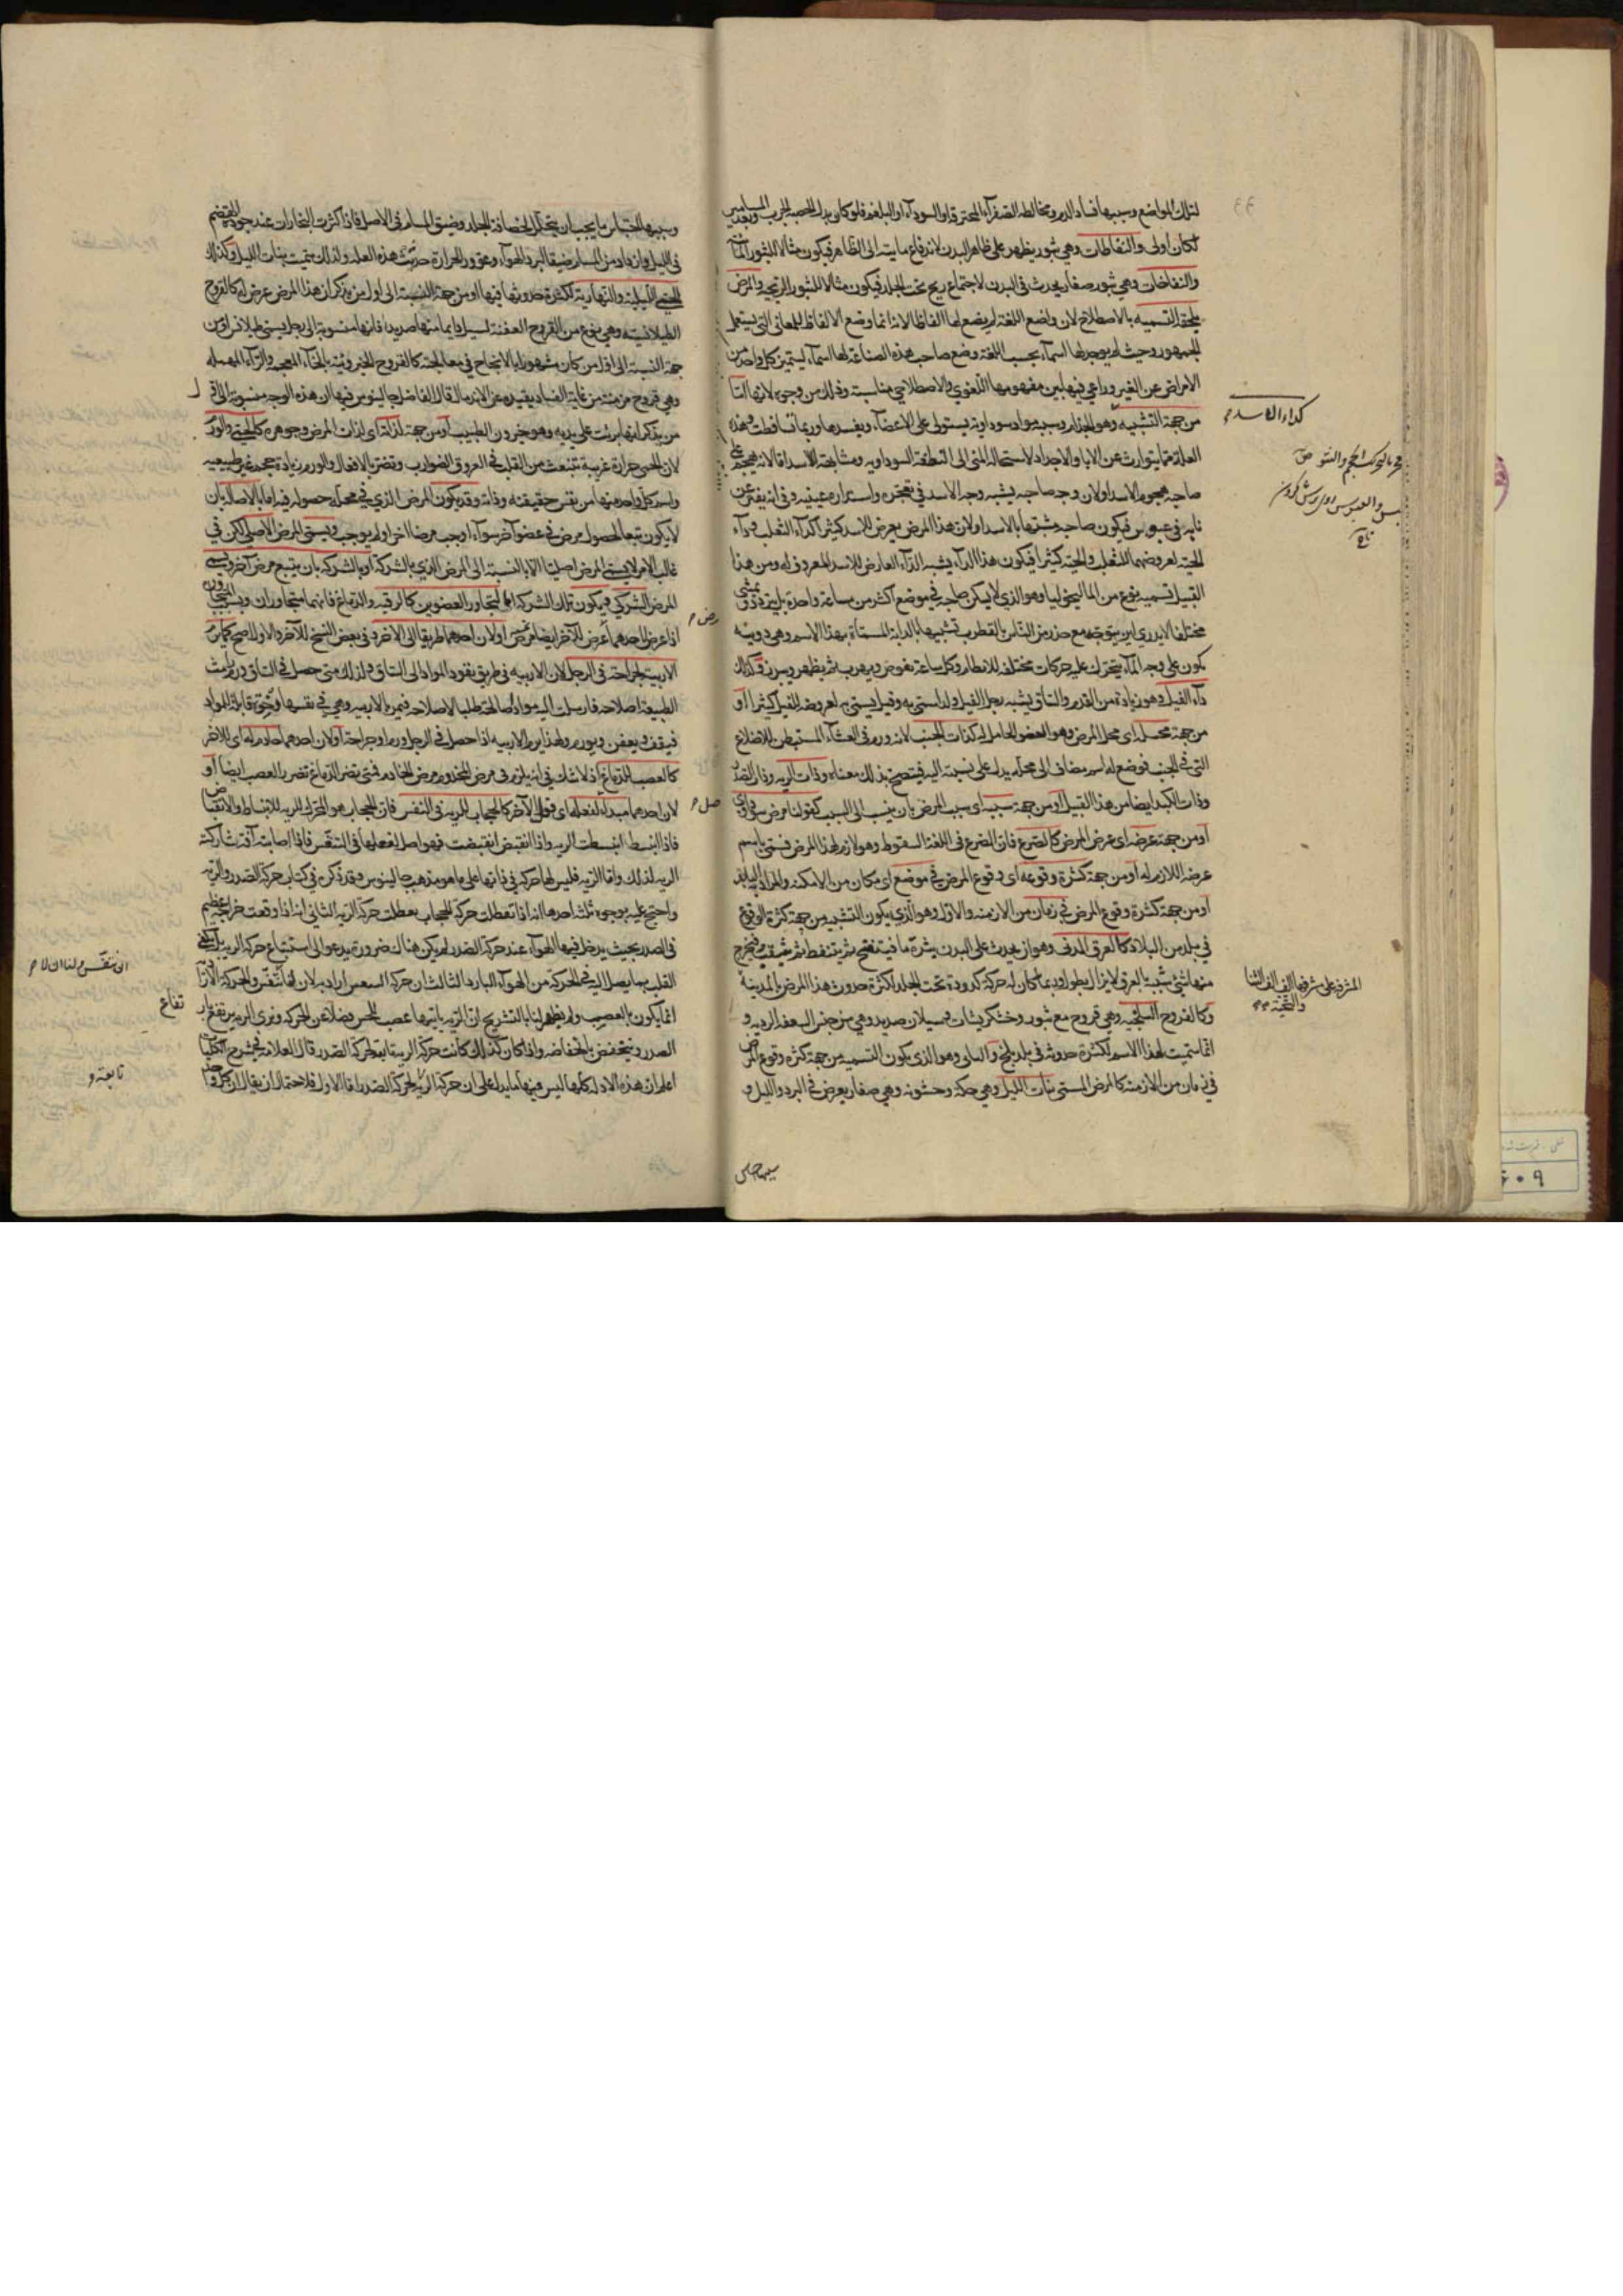 لتلك المواضع وسببها فساد الدم ومخالطة الصفرآء المحترقة او السودآء او البلغم فلو كان بدل الحصبة الجرب
لكان اولى والنفاطات وهي بثور يظهر على ظاهر البدن لاندفاع مايته الى الظاهر فيكون مثالا للبثور المائية
والنفاخات وهي بثور صغار يحدث في البدن لاجتماع ريح تحت الجلد فيكون مثالا للبثور الريحية والمرض
يلحقه التسمية بالاصطلاح لان واضع اللغة لم يضع لها الفاظا لانه انما وضع الالفاظ للمعاني التي يستعمله
الجمهور وحيث لم يوجد لها اسمآء بحسب اللغة وضع صاحب هذه الصناعة لها اسمآء ليتميز كل واحد من
الامراض عن الغير وراعي فيها بين مفهومها اللغوي والاصطلاحي مناسبة وذلك من وجوه لانها اما
من جهة التشبيه وهو الجذام وسببه مواد سوداوية يستولى على الاعضآء ويفسدها وربما تساقطت وهذه
العلة مما يتوارث عن الابا والاجداد لاستحالة المنى الى النطفة السوداوية ومشابهته للاسد اما لانه يهجم على
صاحبه هجوم الاسد او لان وجه صاحبه يشبه وجه الاسد في تعجره واستدارة عينيه وفي انه يفتر عن
نابه في عبوس فيكون صاحبه مشبها بالاسد او لان هذا المرض يعرض للاسد كثيرا كدآء الثعلب ودآء
الحية لعروضهما للثعلب والحية كثيرا فيكون هذا الدآء يشبه الدآء العارض للاسد المعروف له ومن هذا
القبيل تسمية نوع من الماليخوليا وهو الذي لا يسكن صاحبه في موضع اكثر من ساعة واحدة بل يتردد في مشي
مختلفا لا يدري اين يتوجه مع حذر من الناس بالقطرب تشبيها بالدابة المسماة بهذا الاسم وهي دويبة
يكون على وجه المآء يتحرك عليه حركات مختلفة بلا نظام وكل ساعة يغوص ويهرب ثم يظهر ويبرز وكذلك
دآء الفيل وهو زيادة من القدم والساق يشبه رجل الفيل ولذا سمى به وقيل يسمى به لعروضه للفيل كثيرا او
من جهة محله اى محل المرض وهو العضو الحامل له كذات الجنب لانه ورم في الغشآء المستبطن للاضلاع
التي في الجنب فوضع له اسم مضاف الى محله يدل على نسبته اليه فيتضح بذلك معناه وذات الريه وذات الصدر
وذات الكبد ايضا من هذا القبيل او من جهة سببه اى سبب المرض بان ينسب الى السبب كقولنا مرض سوداوي
او من جهة عرضه اى عرض المرض كالصرع فان الصرع في اللغة السقوط وهو لازم لهذا المرض فسمى باسم
عرضه اللازم له او من جهة كثرة وقوعه اى وقوع المرض في موضع اى مكان من الامكنة والمراد به البلد
او من جهة كثرة وقوع المرض في زمان من الازمنة والاول وهو الذي يكون التشبيه من جهة كثرة الوقوع
في بلد من البلاد كالعرق المدنى وهو ان يحدث على البدن بثرة ما فينتفخ ثم يتنفط ثم يثقب فيخرج
منها شئ شبيه بالعرق لا يزال يطول وربما كان له حركة كدودة تحت الجلد لكثرة حدوث هذا المرض بالمدينة
وكالقروح البلخية وهي قروح مع بثور وخشكريشات وسيلان صديد وهي من جنس السعفة الردية و
انما سميت بهذا الاسم لكثرة حدوثه في بلد بلخ والثاني وهو الذي يكون التسمية من جهة كثرة وقوع المرض
في زمان من الازمنة كالمرض المسمى ببنات الليل وهي حكة وخشونة وهي صغار يعرض في البرد والليل و
كداء الاسد م
وسببها احتباس ما يجب ان يتحلل لخصافة الجلد وضيق المسام في الاصل فاذا كثرت البخارات عند جودة الهضم
في الليل وازداد من المسام ضيقا لبرد الهوآء وعوور الحرارة حدثت هذه العلة ولذلك سميت ببنات الليل وكذلك
الحمى الليلية والنهارية لكثرة حدوثها فيها او من جهة النسبة الى اول من يذكر ان هذا المرض عرض له كالقروح
الطيلانية وهي نوع من القروح العفنة لسيل دايما منها صديد فانها منسوبة الى رجل يسمى طيلافس او من
جهة النسبة الى اول من كان مشهورا بالانجاح في معالجته كالقروح الخيرونية بالخآء المعجمة والرآء المهملة
وهي قروح مزمنة من غاية الفساد بعيدة عن الاندمال قال الفاضل جالينوس فيها ان هذه الوجه منسوبة الى اول
من يذكر انها برئت على يديه وهو خيرون الطبيب او من جهة لذاته اى لذات المرض وجوهره كالحمى والورم
لان الحمى حرارة غريبة تنبعث من القلب في العروق الضوارب وتضر بالافعال والورم زيادة حجم غير طبيعية
واسم كل واحد منها من نفس حقيقته وذاته وقد يكون المرض الذي في محله حصوله فيه اما بالاصالة بان
لا يكون تبعا لحصول مرض في عضو آخر سوآء اوجب مرضا آخر اولم يوجب ويسمى المرض الاصلي لكن في
غالب الامر لا يسمى المرض اصليا الا بالنسبة الى المرض الذي بالشركة او بالشركة بان يتبع مرض آخر ويسمى
المرض الشركي ويكون تلك الشركة اما لتجاور العضوين كالرقبة والدماغ فانهما متجاوران وبسبب المجاورة
اذا عرض لاحدهما مرض عرض للآخر ايضا مرض او لان احدهما طريقا الى الآخر وفي بعض النسخ للآخر والاول اصح كما يرم
الاربية لجراحة في الرجل لان الاربيه في طريق نفود المواد الى الساق ولذلك متى حصل في الساق ورم بعثت
الطبيعة اصلاحه فارسلت اليه مواد صالحة طلبا لاصلاحه فيمر بالاربيه وهي في نفسها رخوة قابلة للمواد
فيقف ويعفن ويورم ولهذا يرم الاربيه اذا حصل في الرجل ورم او جراحة او لان احدهما خادم له اى للآخر
كالعصب للدماغ اذ لا شك في انه يلزم في مرض المخدوم مرض الخادم فمتى تضر الدماغ تضر بالعصب ايضا او
لان احدهما مبدا لفعله اى فعل الآخر كالحجاب للريه في التنفس فان الحجاب هو المحرك للريه للانبساط والانقباض
فاذا انبسط انبسطت الريه واذا انقبض انقبضت فهو اصل لفعلها في التنفس فاذا اصابته آفة شاركته
الريه لذلك واما الريه فليس لها حركة في ذاتها على ما هو مذهب جالينوس وقد ذكره في كتاب حركة الصدر والريه
واحتج عليه بوجوه ثلثة احدها انه اذا تعطلت حركة الحجاب تعطلت حركة الريه الثاني انه اذا وقعت جراحة عظيم
في الصدر بحيث يدخل فيها الهوآء عند حركة الصدر لم يكن هناك ضرورة يدعو الى استتباع حركة الريه
القلب بما يصل اليه في الحركة من الهوآء البارد الثالث ان حركة التنفس ارادية لان لنا ان نتنفس والحركة الارادية
انما يكون بالعصب ولم يظهر لنا بالتشريح ان الريه ياتيها عصب للحس فضلا عن الحركة ونرى الريه يرتفع بارتفاع
الصدر وينخفض بانخفاضه واذا كان كذلك كانت حركة الريه تابعة لحركة الصدر قال العلامة في شرح الكليات
اعلم ان هذه الادلة كلها ليس فيها ما يدل على ان حركة الريه لحركة الصدر اما الاول فلاحتمال ان يقال ان حركة
تابعة و